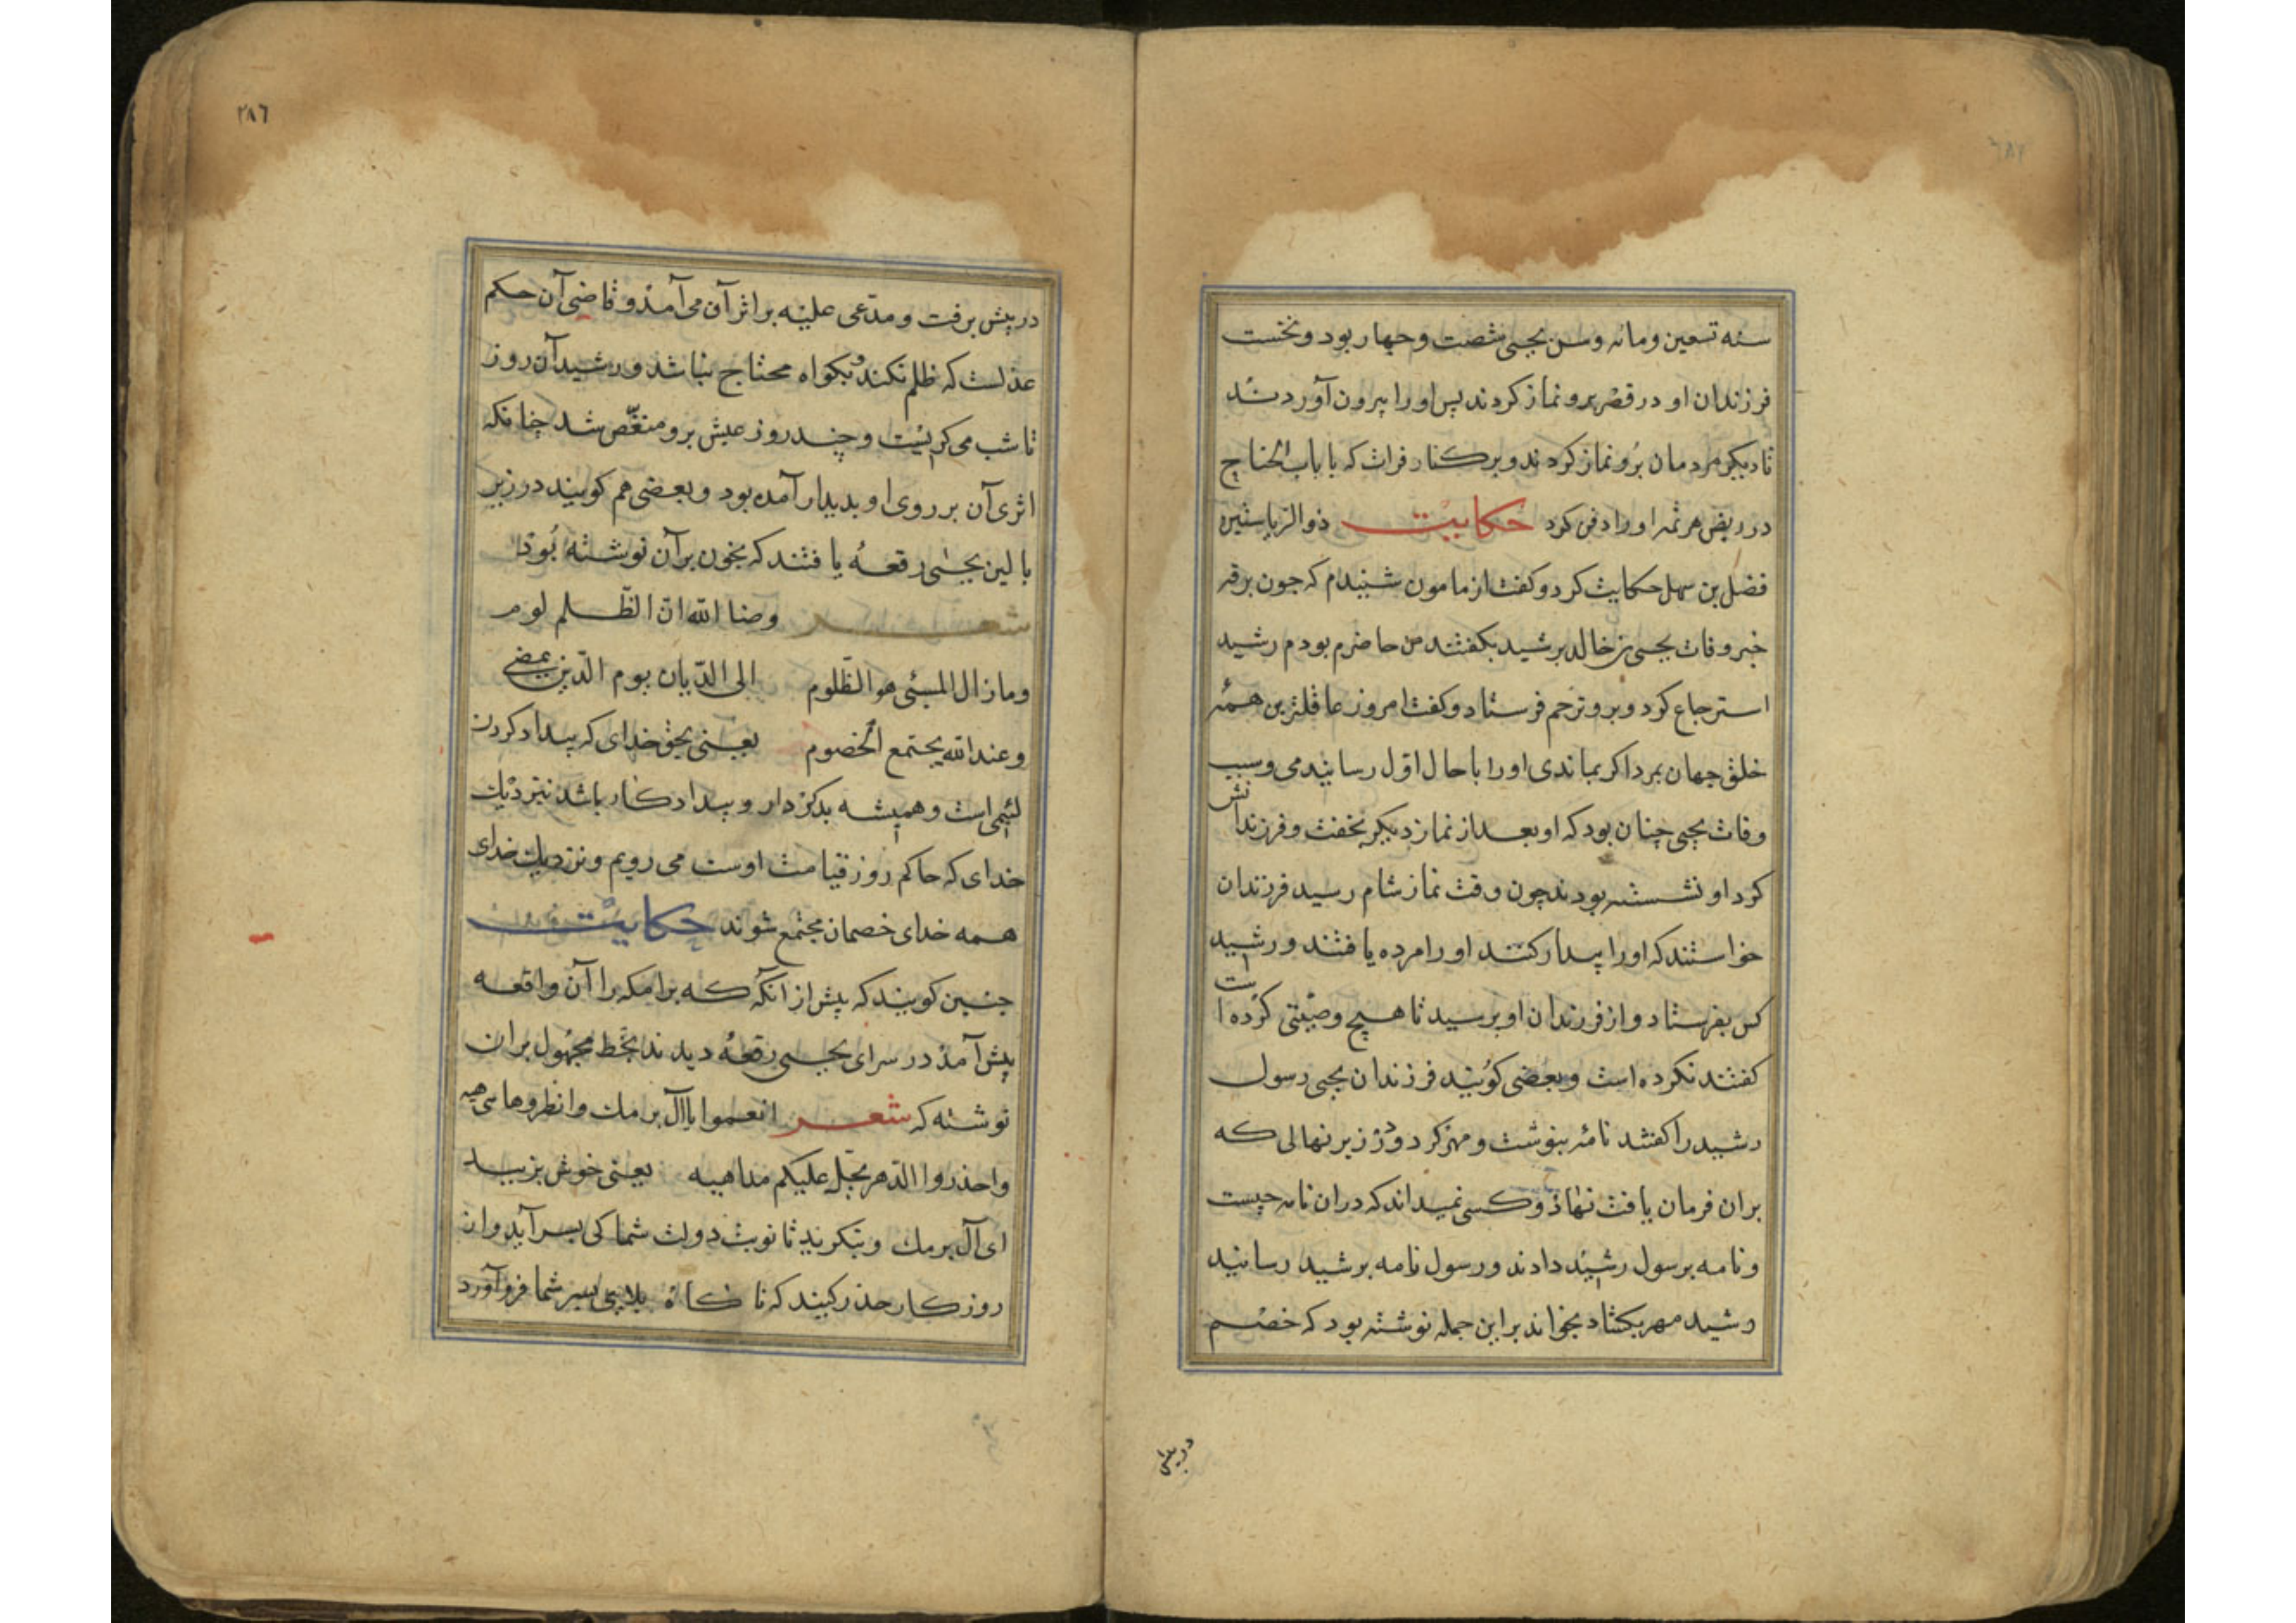 سنه تسعین ومائه وسن یحیی شصت وچهار بود ونخست
فرزندان او در قصر برو نماز کردند پس اورا بیرون آوردند
تا دیگر مردمان برو نماز کردند و بر کنار فرات که با باب الجناح
در ربض هرثمه اورا دفن کرد حکایت ذوالریاستین
فضل بن سهل حکایت کرد و کفت از مامون شنیدم که جون برقه
خبر وفات یحیی بن خالد برشید بکفتند من حاضرم بودم رشید
استرجاع کرد و برو ترحم فرستاد و کفت امروز عاقلترین همه
خلق جهان بمرد اکر بماندی اورا با حال اول رسانیدمی وسبب
وفات یحیی چنان بود که او بعد از نماز دیکر بخفت و فرزندانش
کرد او نشسته بودند چون وقت نماز شام رسید فرزندان
خواستند که اورا بیدار کنند اورا مرده یافتند و رشید
کس بفرستاد و از فرزندان او برسید تا هیچ وصیتی کرده است
کفتند نکرده است و بعضی کویند فرزندان یحیی رسول
رشید را کفتند نامه بنوشت و مهر کرد و در زیر نهالی که
بران فرمان یافت نهاد و کسی نمیداند که دران نامه چیست
و نامه برسول رشید دادند و رسول نامه برشید رسانید
رشید مهر بکشاد بخواند براین جمله نوشته بود که خصم
٢٨٦
در پیش برفت و مدعی علیه بر اثر آن می آمد و قاضی آن حکم
عدلست که ظلم نکند و بکواه محتاج نباشد و رشید آن روز
تا شب می کریست و چند روز عیش برو منغص شد چنانکه
اثری آن بر روی او بدیدار آمده بود و بعضی هم کویند در زیر
بالین یحیی رقعه یافتند که بخون برآن نوشته بود
شعر وضا الله ان الظلم لوم
وما زال المسئی هو الظلوم الی الدیان یوم الدین یمضی
وعند الله یجتمع الخصوم یعنی بحق خدای که بیداد کردن
لئیمی است و همیشه بدکردار و بیدادکار باشد نیز دیک
خدای که حاکم روز قیامت اوست می رویم و نزدیک خدای
همه خدای خصمان مجتمع شوند حکایت
جنین کویند که پیش از آنکه که برامکه را آن واقعه
پیش آمد در سرای یحیی رقعه دیدند بخط مجهول بران
نوشته که شعر انعموا یا آل برمک وانظروها می هیه
واحذروا الدهر یحل علیکم مداهیه یعنی خوش بزیید
ای آل برمک و بنکرید تا نوبت دولت شما کی بسر آید و از
روزکار حذر کنید که نا کاه بلایی بسر شما فرو آورد